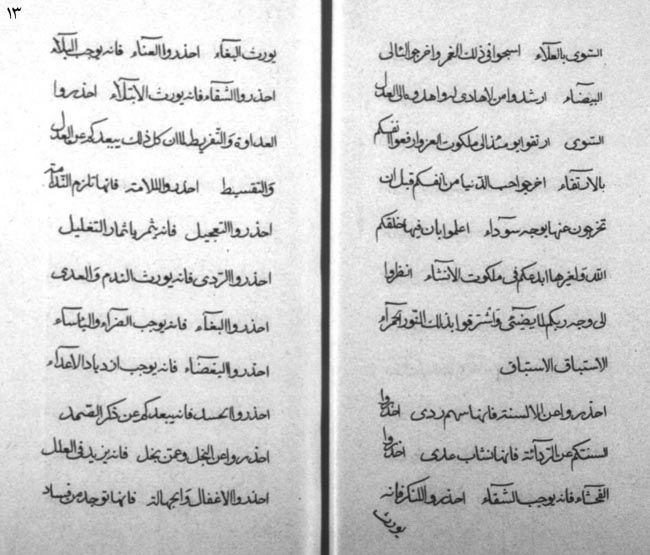 ١٣
السّوی بالعلاء اسبحوا فی ذلک الغمر و اخرجوا لئالی
البیضاء ارشدوا من لاهادی له و اهدوه الی العدل
السّوی ارتقوا یومئذ الی ملکوت العزّ و ارفعوا انفسکم
بالارتقاء اخرجوا حبّ الدّنیا من انفسکم قبل ان
تخرجون عنها بوجه سوداء اعلموا بان فیها خلقکم
اللّه و لغیرها ابدعکم فی ملکوت الانشاء انظروا
الی وجه ربکم لما یضیئی و لتشرقوا بذلک النّور الحمراء
الاستباق الاستباق
احذروا من الالسنة فانها سهم ردی احذروا
السنتکم عن الرّدائة فانها نشاب عدی احذروا
الفحشاء فانه یوجب الشقاء احذروا النکر فانه
یورث
یورث البغاء احذروا العناء فانه یوجب البلاء
احذروا الشقاء فانه یورث الابتلاء احذروا
العداوة و التّفریط لما ان کل ذلک یبعدکم عن العدل
و التقسیط احذروا الملامة فانها تلزم النّدامة
احذروا التعجیل فانه یثمر باثمار التغلیل
احذروا الرّدی فانه یورث الندم و العدی
احذروا البغاء فانه یوجب الضراء و البأساء
احذروا البغضاء فانه یوجب ازدیاد الاعداء
احذروا الحسد فانه یبعدکم عن ذکر الصّمد
احذروا عن البخل و عمّن بخل فانه یزید فی العلل
احذروا الاغفال و الجهالة فانها توجد من فساد